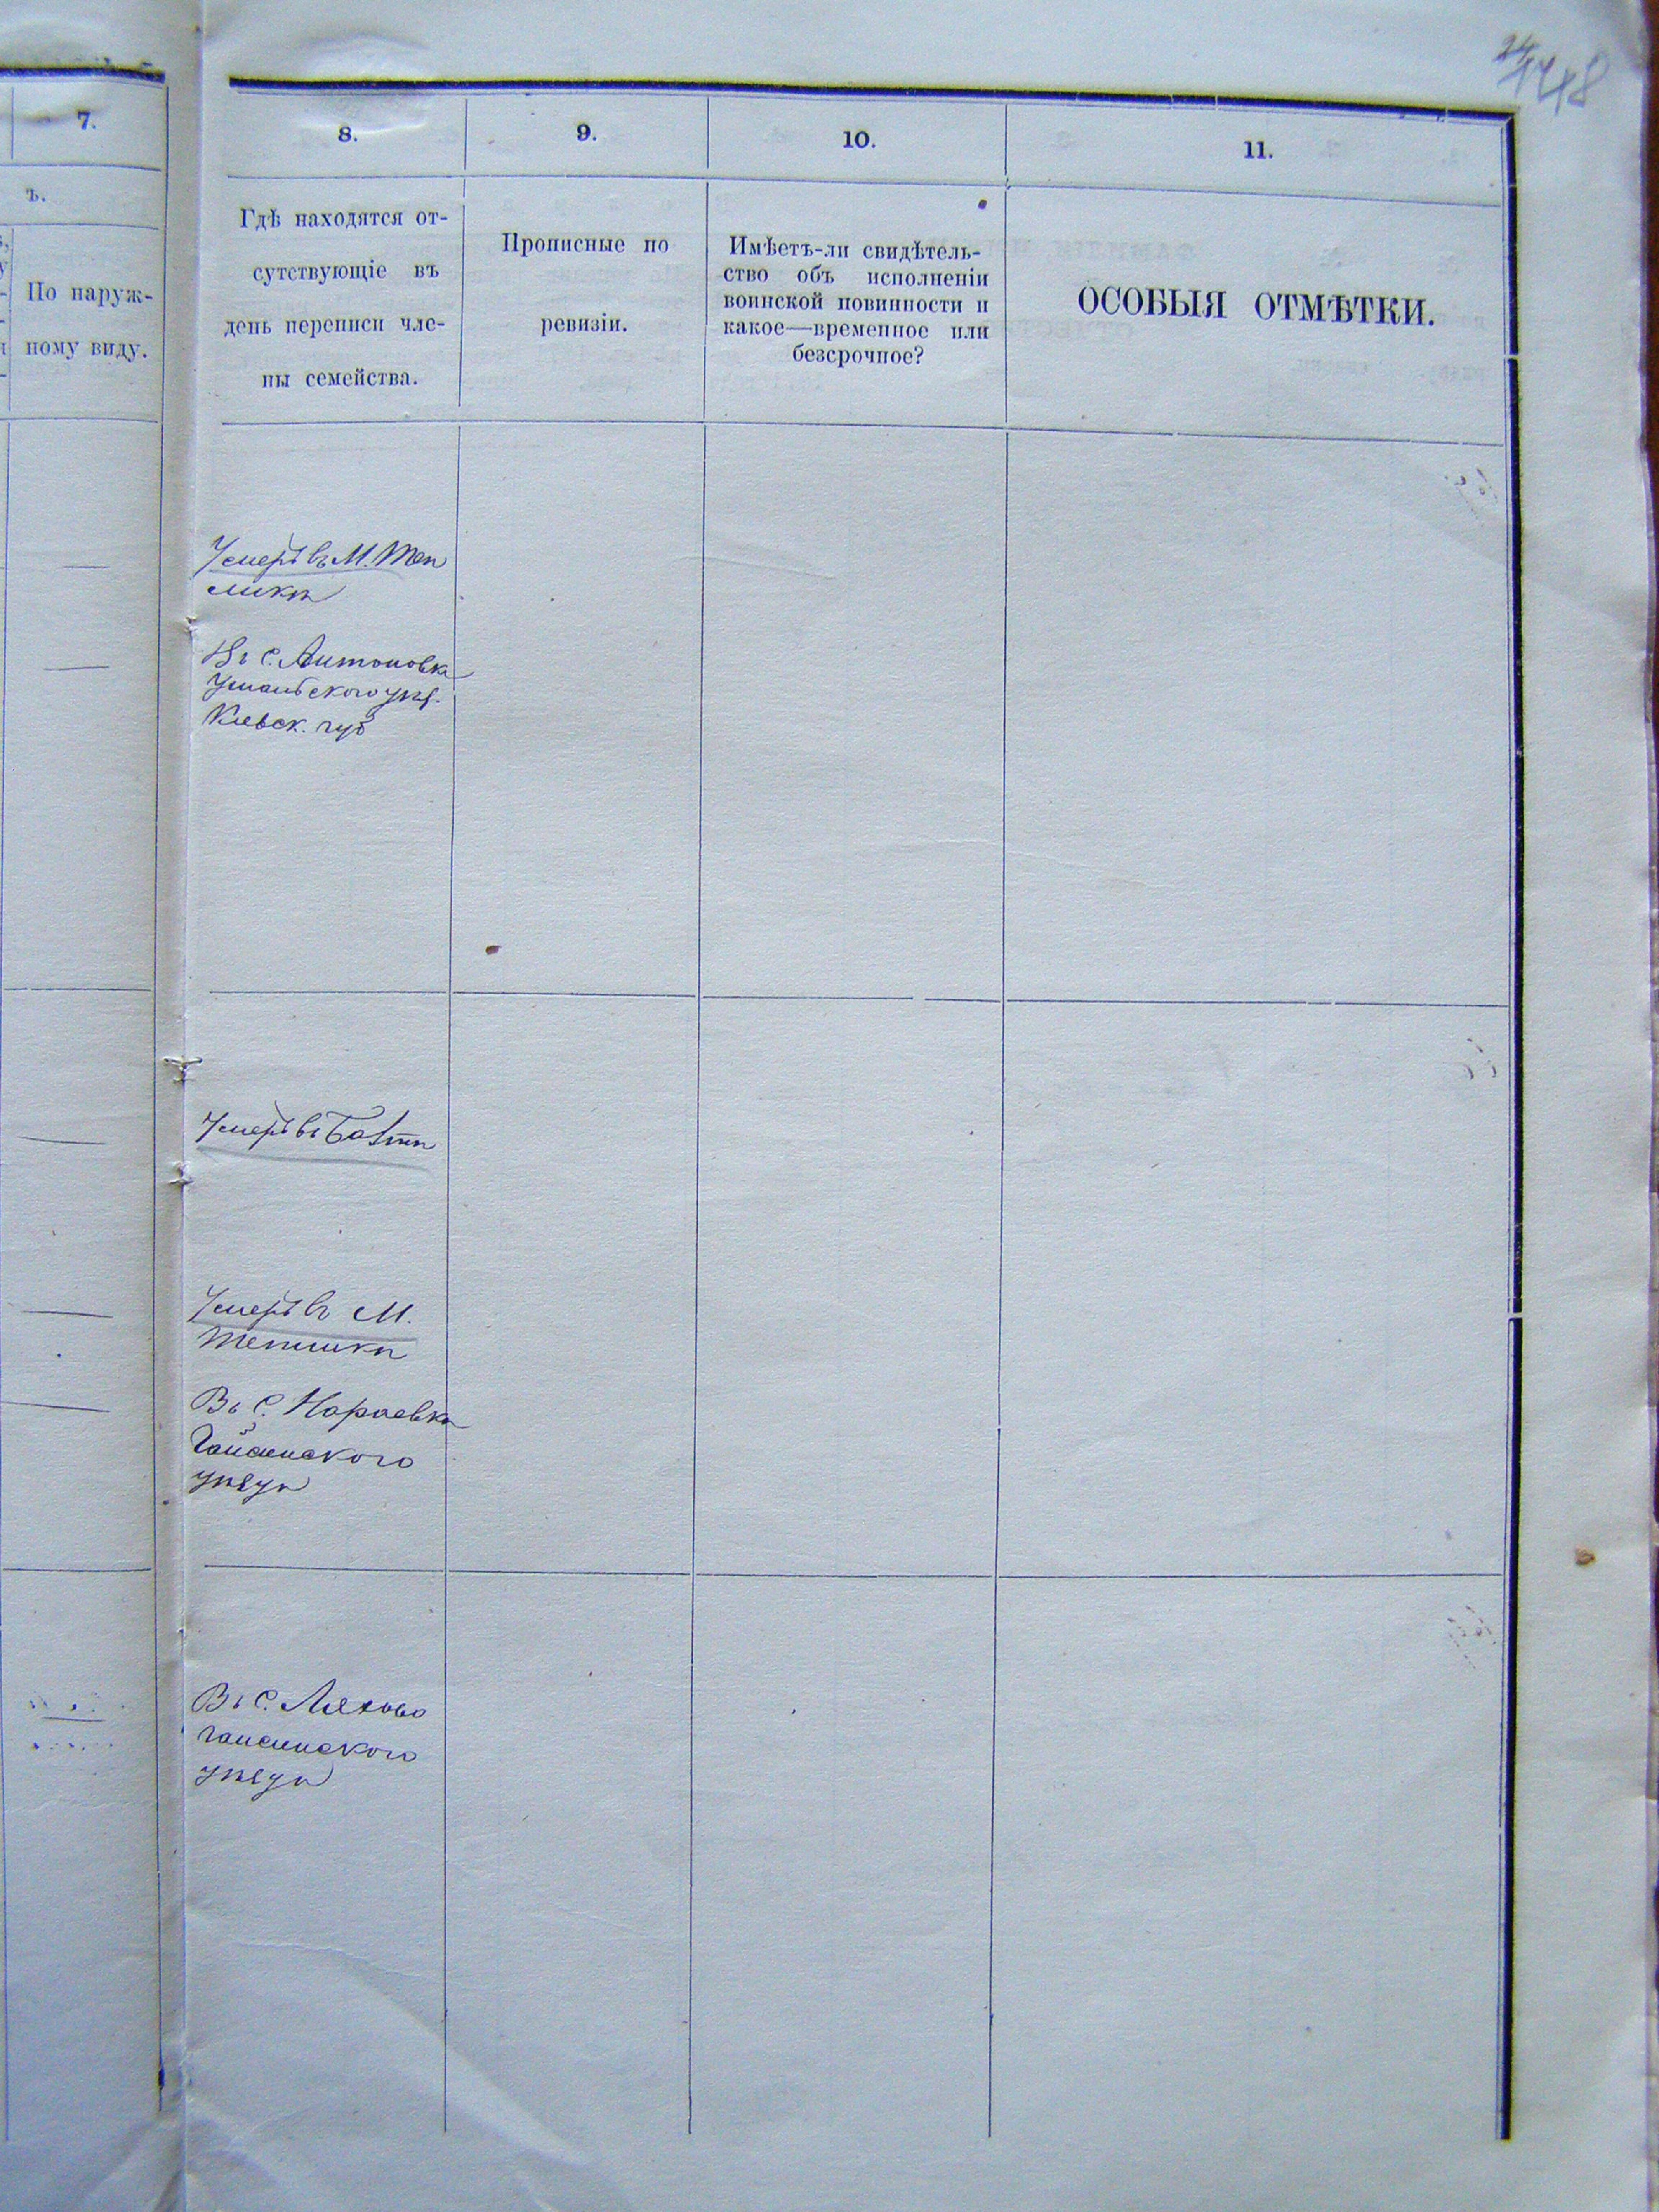 448
7.
8.
9.
10.
11.
ъ.
По наруж-
ному виду.
Гдѣ находятся от-
сутствующіе въ
день переписи чле-
ны семейства.
Прописные по
ревизіи.
Имѣетъ-ли свидѣтель-
ство объ исполненіи
воинской повинности и
какое—временное или
безсрочное?
ОСОБЫЯ ОТМѢТКИ.
Умеръ въ М. Теп
ликѣ
Въ С. Антоновкѣ
Уманьского уѣз.
Кіевск. губ
Умеръ въ Балтѣ
Умеръ въ М.
Тепликѣ
Въ С. Нараевкѣ
Гайсинского
уѣзда
Въ С. Ляхово
Гайсинского
уѣзда